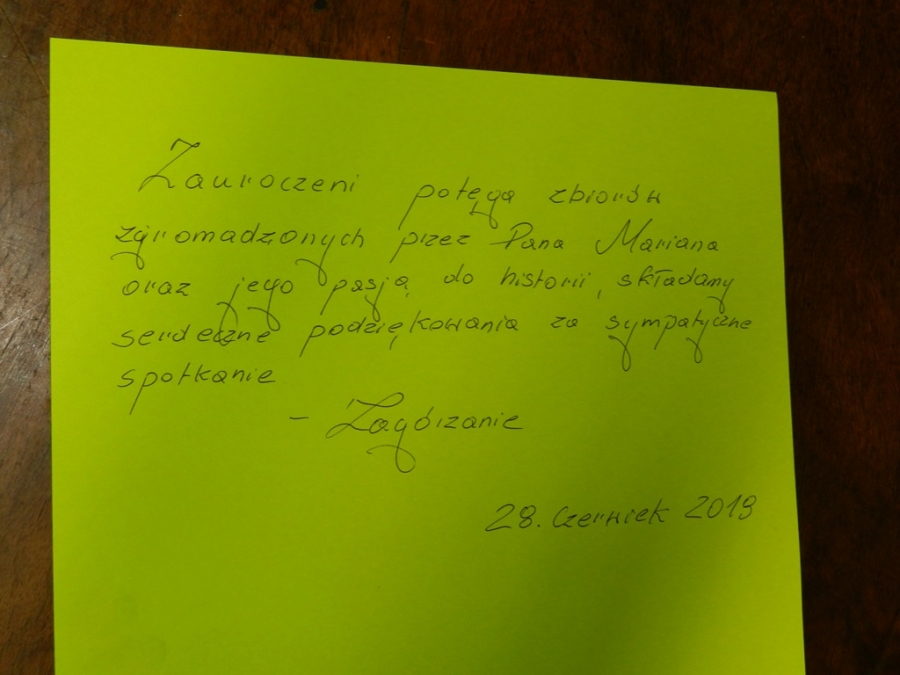 Zauroczeni potęgą zbiorów
zgromadzonych przez Pana Mariana
oraz jego pasją do historii, składamy
serdeczne podziękowania za sympatyczne
spotkanie
- Zagórzanie
28. Czerwiec 2019